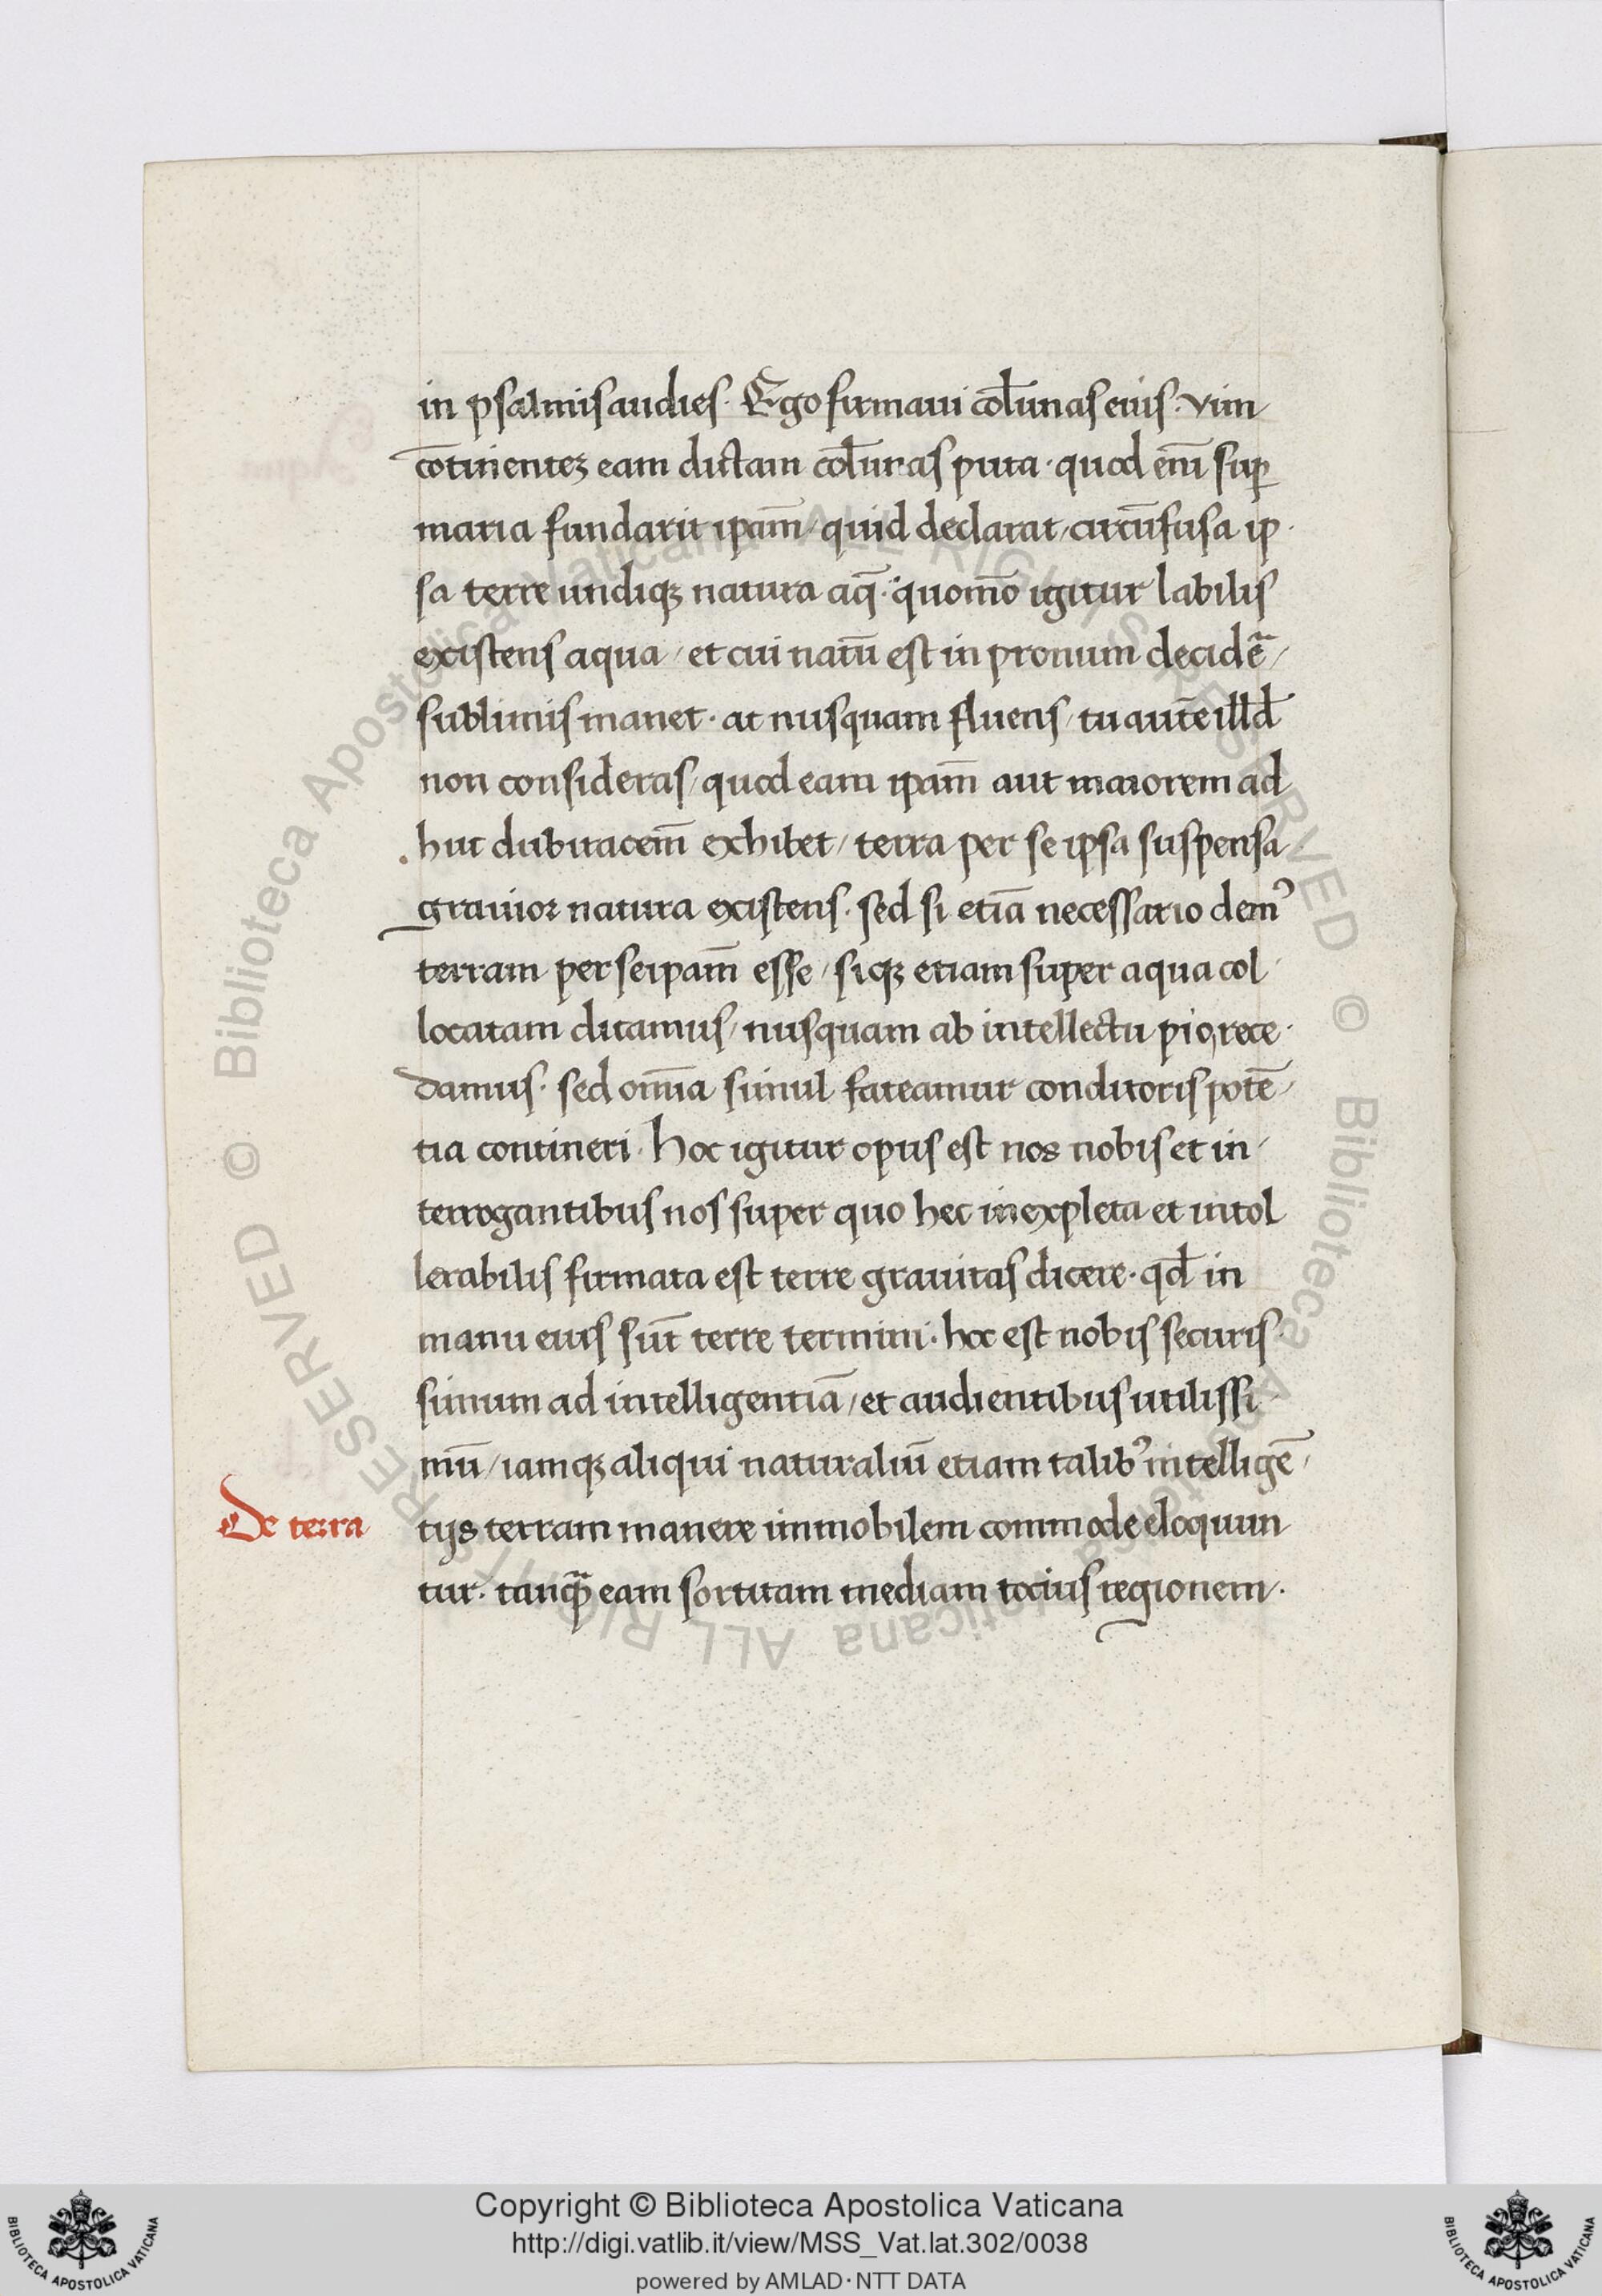 in psalmis audies· Ego firmaui col̄unas eius· vim
c̄otinentez eam dictam col̄unas puta· quod eni᷒ sup̱
maria fundarit ipam̄/ quid declarat/ circūfusa ip·
sa terre undiqꝫ natura aq̄· quom̄o igitur labilis
existens aqua/ et cui natū est in pronum decidē/
sublimis manet· at nusquam fluens/ tu autē illd̄
non consideras/ quod eam ipam̄ aut maiorem ad
huc dubitacem̄ exhibet/ terra per se ipsa suspensa
grauior natura existens· sed si etiā necessario dem᾽
terram per seipam̄ esse/ siqꝫ etiam super aqua col·
locatam dicamus/ nusquam ab intellectu pio rece·
damus· sed om̄ia simul fateamur conditoris potē/
tia contineri· hoc igitur opus est nos nobis et in/
terrogantibus nos super quo hec inexpleta et intol
lerabilis firmata est terre grauitas dicere· qd̄ in
manu eius sūt terre termini· hoc est nobis securis·
simum ad intelligentiā/ et audientibus utilissi·
mū/ iamqꝫ aliqui naturaliū etiam talib᾽ intelligē/
De terra
tijs terram manere immobilem commode eloquun
tur· tanꝙ̄ eam sortitam mediam tocius regionem·
© Biblioteca Apostolica Vaticana ALL RIGHTS RESERVED
© Biblioteca Apostolica Vaticana ALL RIGHTS RESERVED
Copyright © Biblioteca Apostolica Vaticana
http://digi.vatlib.it/view/MSS_Vat.lat.302/0038
powered by AMLAD·NTT DATA
BIBLIOTECA APOSTOLICA VATICANA
BIBLIOTECA APOSTOLICA VATICANA